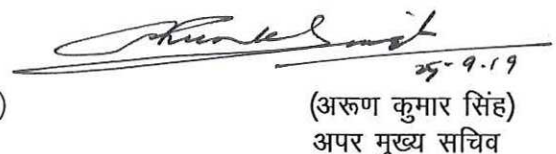 25-9-19
)
(अरूण कुमार सिंह)
अपर मुख्य सचिव